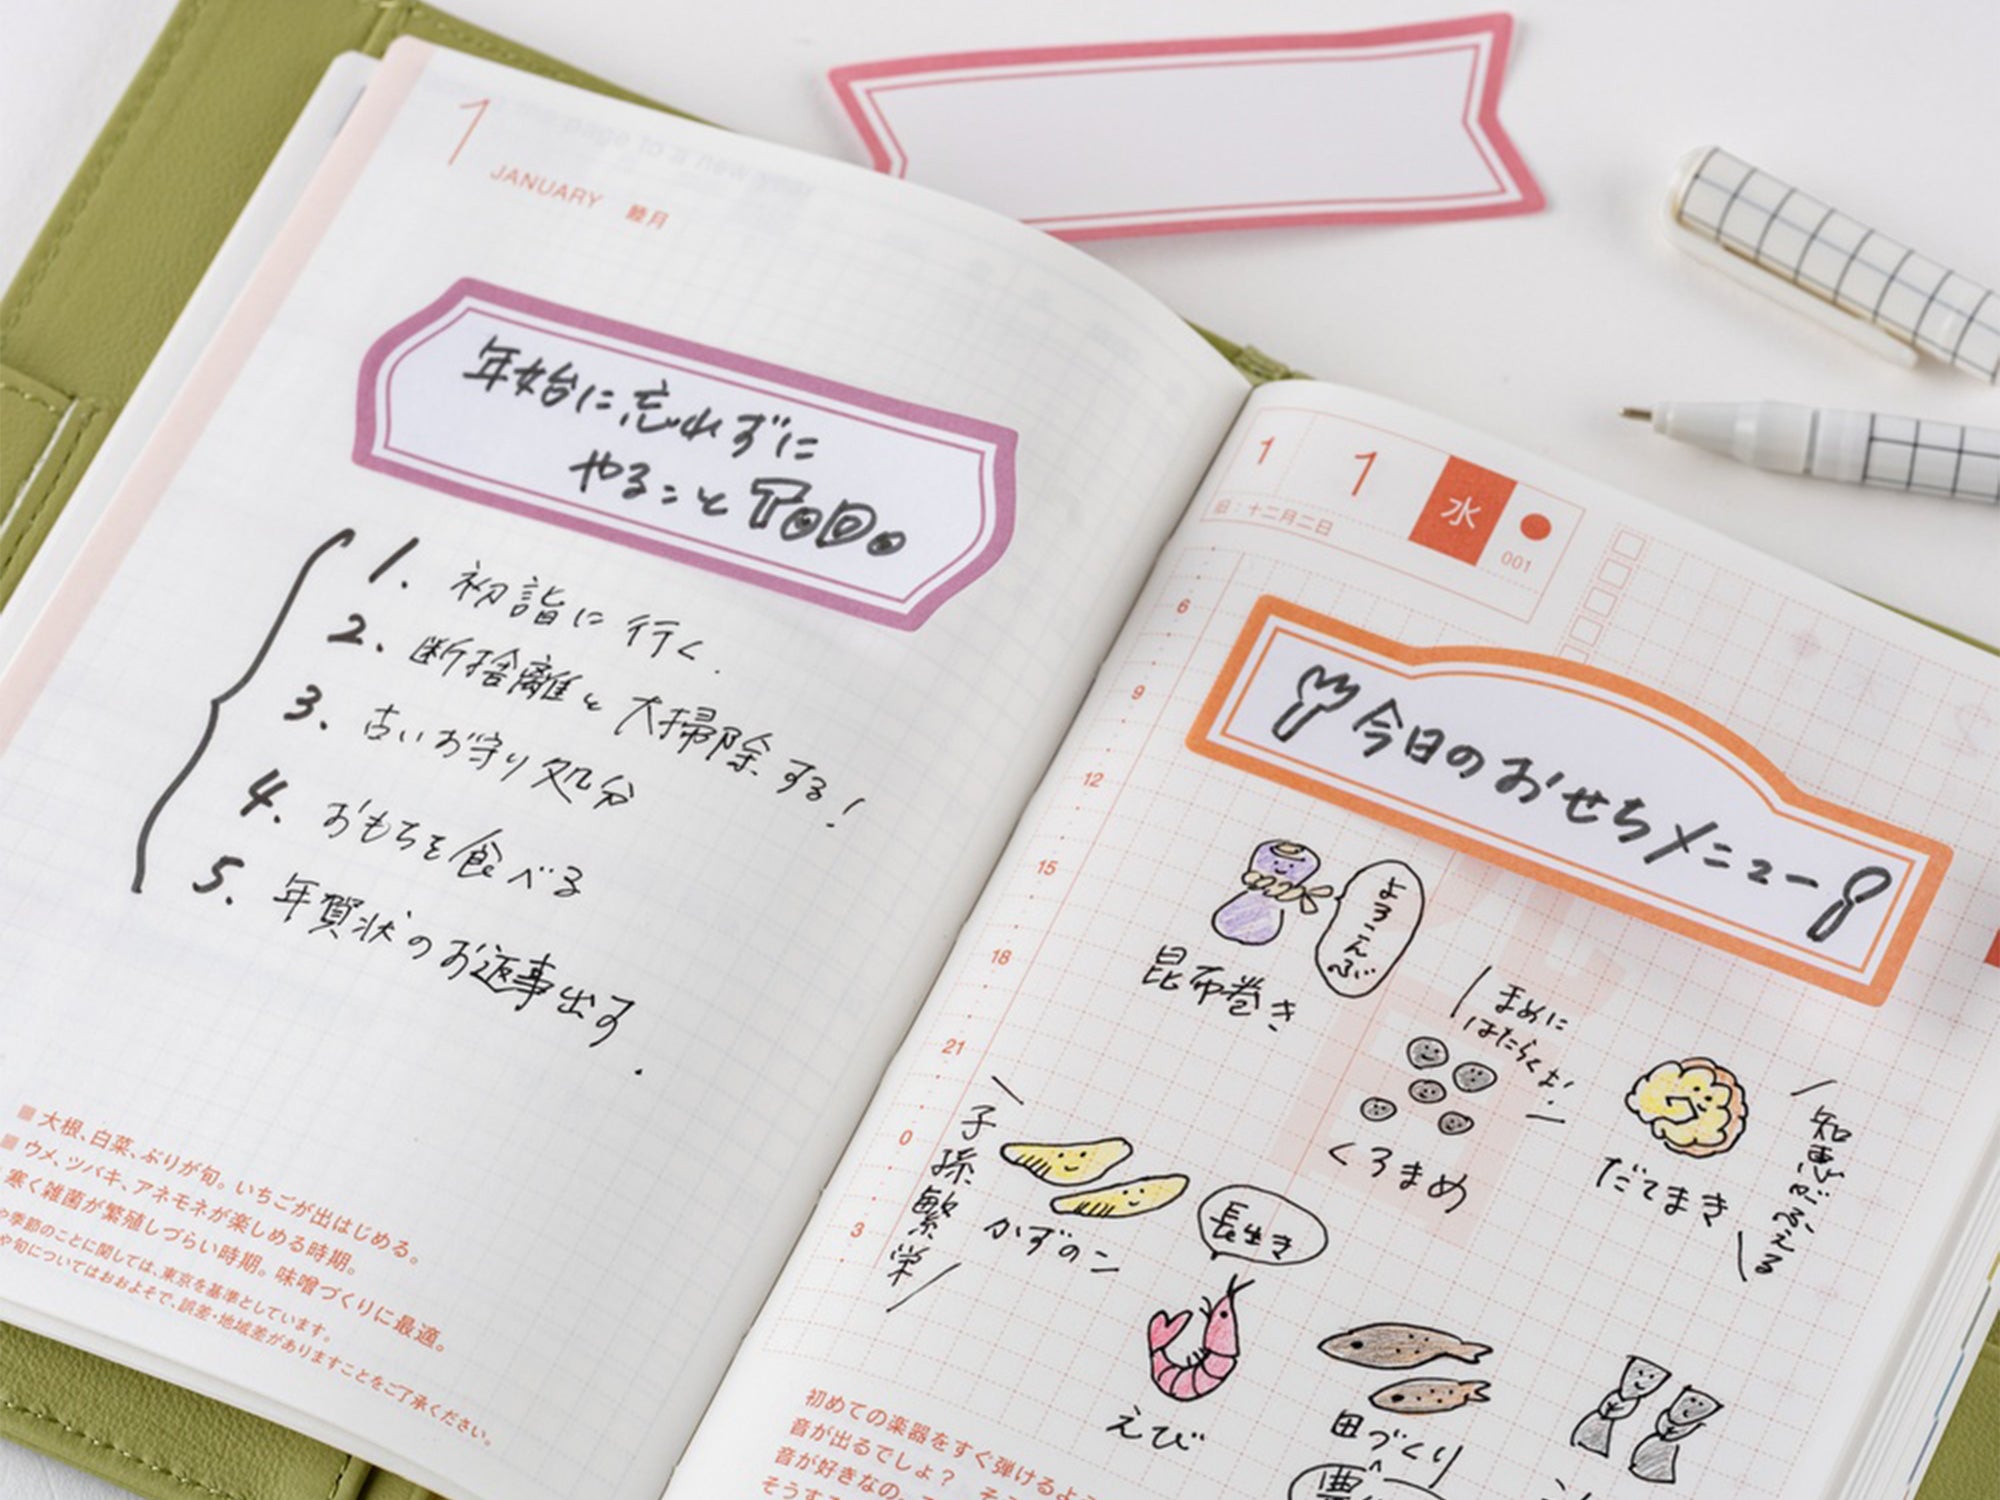 1
JANUARY 睦月
年始に忘れずに
やること TODO
1. 初詣に行く.
2. 断捨離と大掃除する!
3. 古いお守り処分
4. おもちを食べる
5. 年賀状のお返事出す.
■ 大根、白菜、ぶりが旬。いちごが出はじめる。
■ ウメ、ツバキ、アネモネが楽しめる時期。
寒く雑菌が繁殖しづらい時期。味噌づくりに最適。
や季節のことに関しては、東京を基準としています。
や旬についてはおおよそで、誤差・地域差がありますことをご了承ください。
1 1 水
旧:十二月二日
001
6
9
12
15
18
21
0
3
今日のおせちメニュー
よろこんぶ
昆布巻き
まめに
はたらくよ!
くろまめ
だてまき
知恵がふえる
子孫繁栄
かずのこ
長生き
えび
田づくり
初めての楽器をすぐ弾けるよ
音が出るでしょ?
音が好きなの。